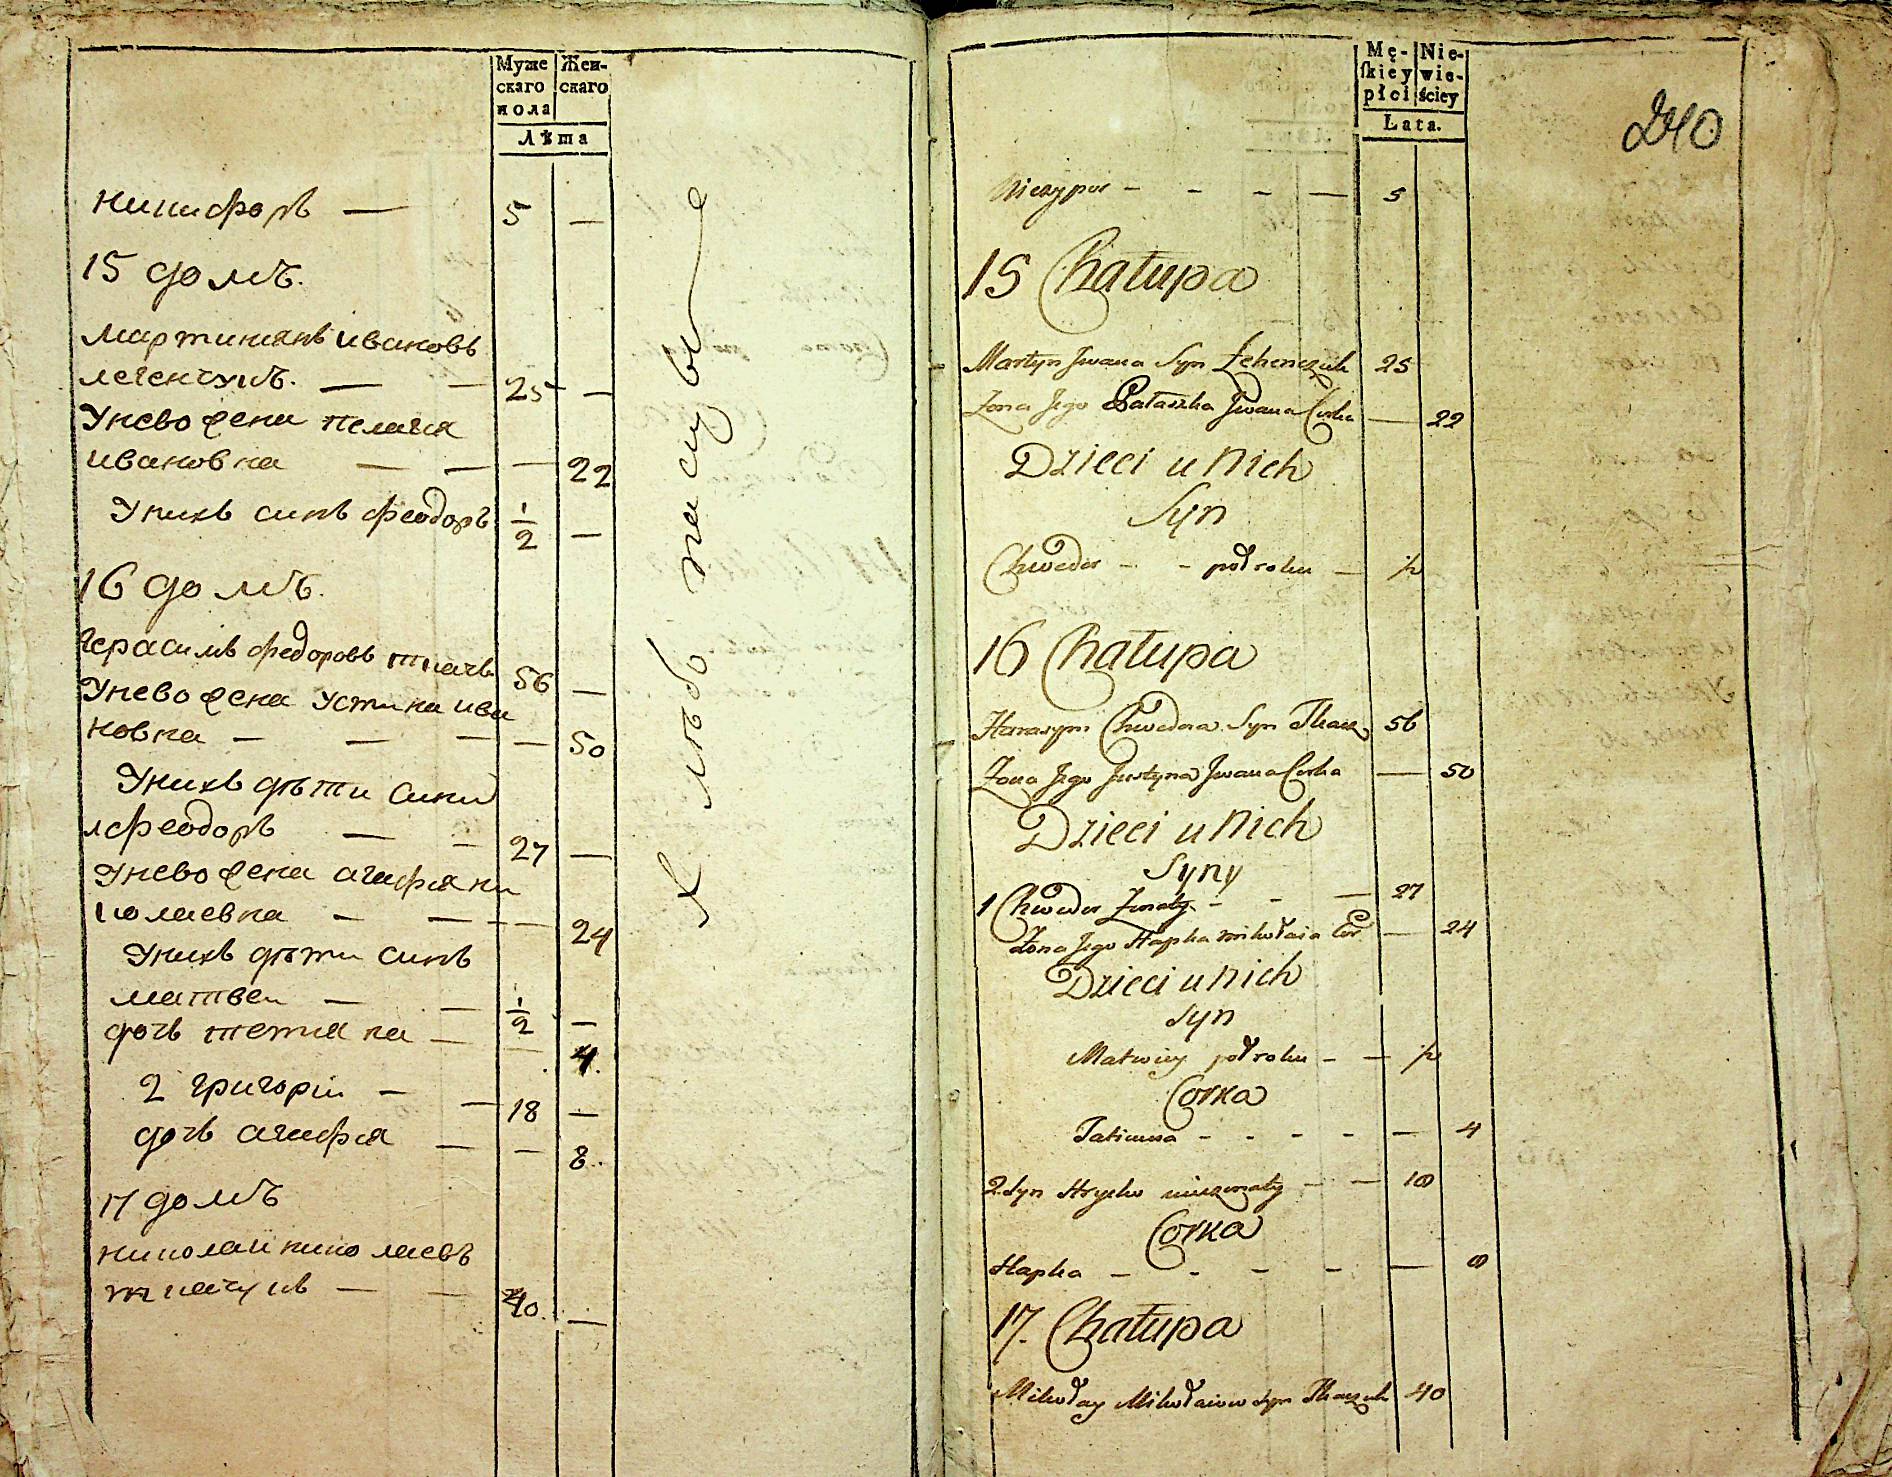 Муже
скаго
пола
Жен-
скаго
Лѣта
никифоръ — 5 —
15 домъ.
мартинианъ ивановъ
легенчукъ. — — 25 —
Унево жена пелагия
ивановна — — — 22
Унихъ синъ феодоръ 1/2 —
16 домъ.
герасимъ федоровъ ткачъ 56 —
Унево жена устина ива
новна — — — — 50
Унихъ дѣти сини
1 феодоръ — — 27 —
Унево жена агафия ни
колаевна — — — 24
Унихъ дѣти синъ
матвеи — — 1/2 —
дочь татияна — — 4.
2 григорiи — — 18 —
дочь агафия — — 8.
17 домъ
николаи николаевъ
ткачукъ — — 40. —
Mę-
skiey
płci
Nie-
wie-
ściey
Lata.
240
Niczypor - - - — 5
15 Chałupa
Martyn Jwana Syn Lehenczuk 25
Żona Jego Pałaszka Jwana Corka — 22
Dzieci u Nich
Syn
Chwedor - - poł roku — 1/2
16 Chałupa
Harasym Chwedora Syn Tkacz 56
Żona Jego Justyna Jwana Corka — 50
Dzieci u Nich
Syny
1 Chwedor Żonaty - - — 27
Żona Jego Hapka Mikołaia Cor — 24
Dzieci u Nich
Syn
Matwiy poł roku - — 1/2
Corka
Tatianna - - - - — 4
2. Syn Hrycko nieżonaty - — 18
Corka
Hapka — - - - — 8
17. Chałupa
Mikołay Mikołaiow Syn Tkaczuk 40